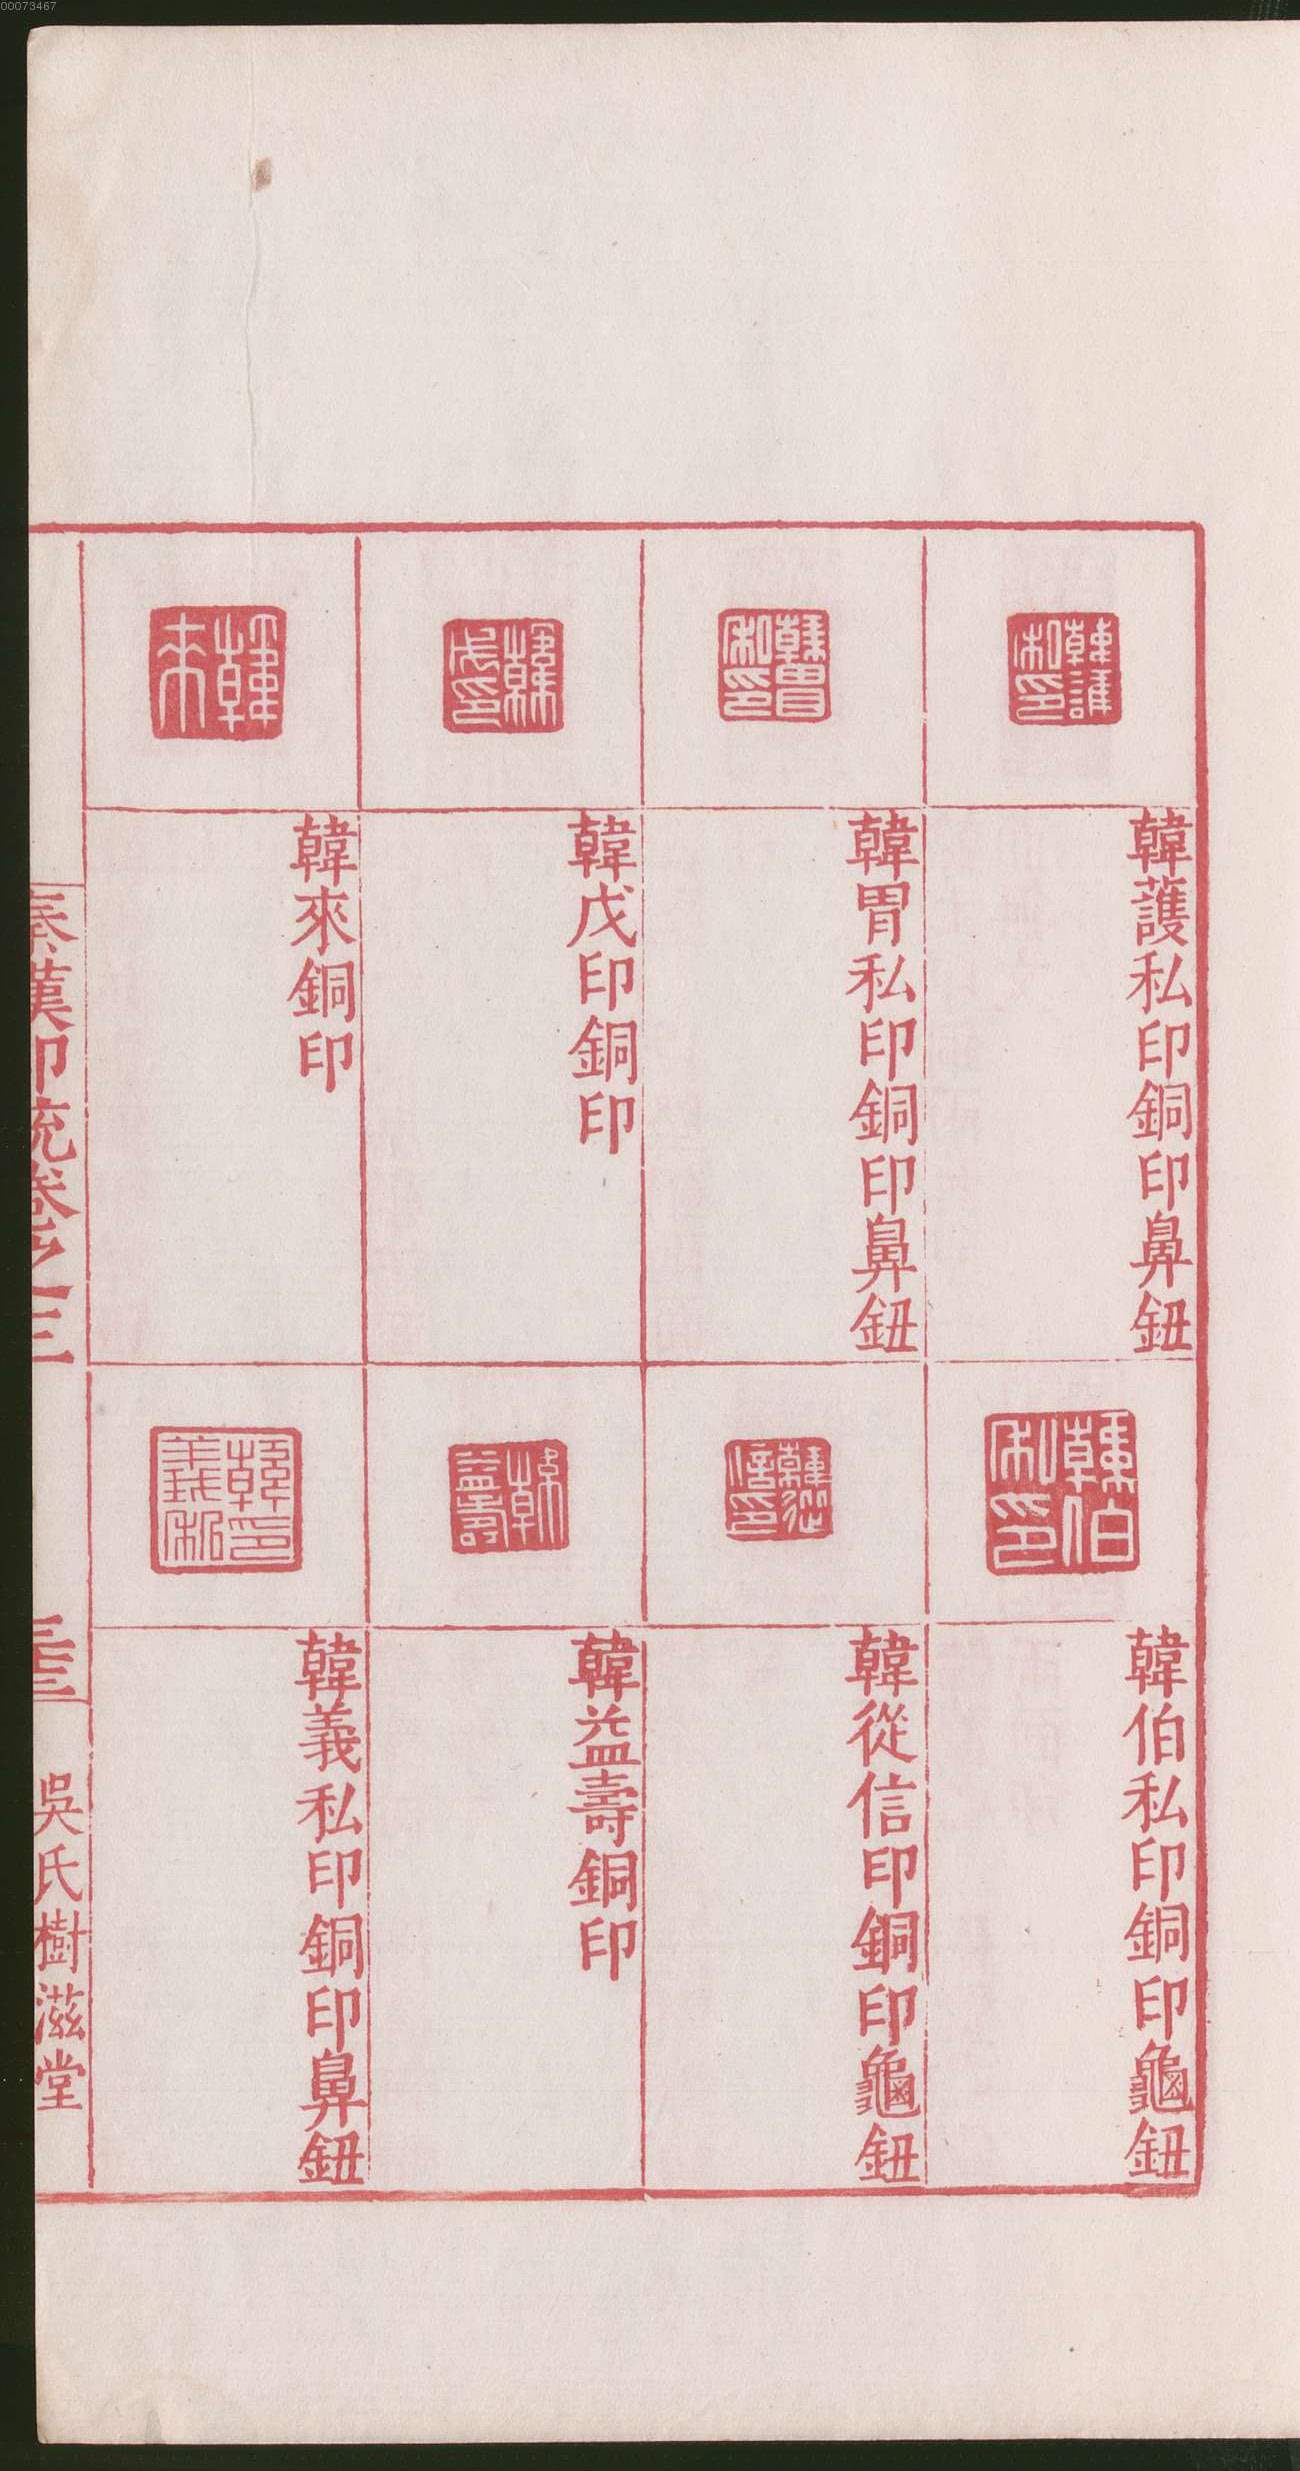 00073467
韓護私印銅印鼻鈕
韓伯私印銅印龜鈕
韓胃私印銅印鼻鈕
韓從信印銅印龜鈕
韓戊印銅印
韓益壽銅印
韓來銅印
韓義私印銅印鼻鈕
秦漢印統卷之三
吳氏樹滋堂